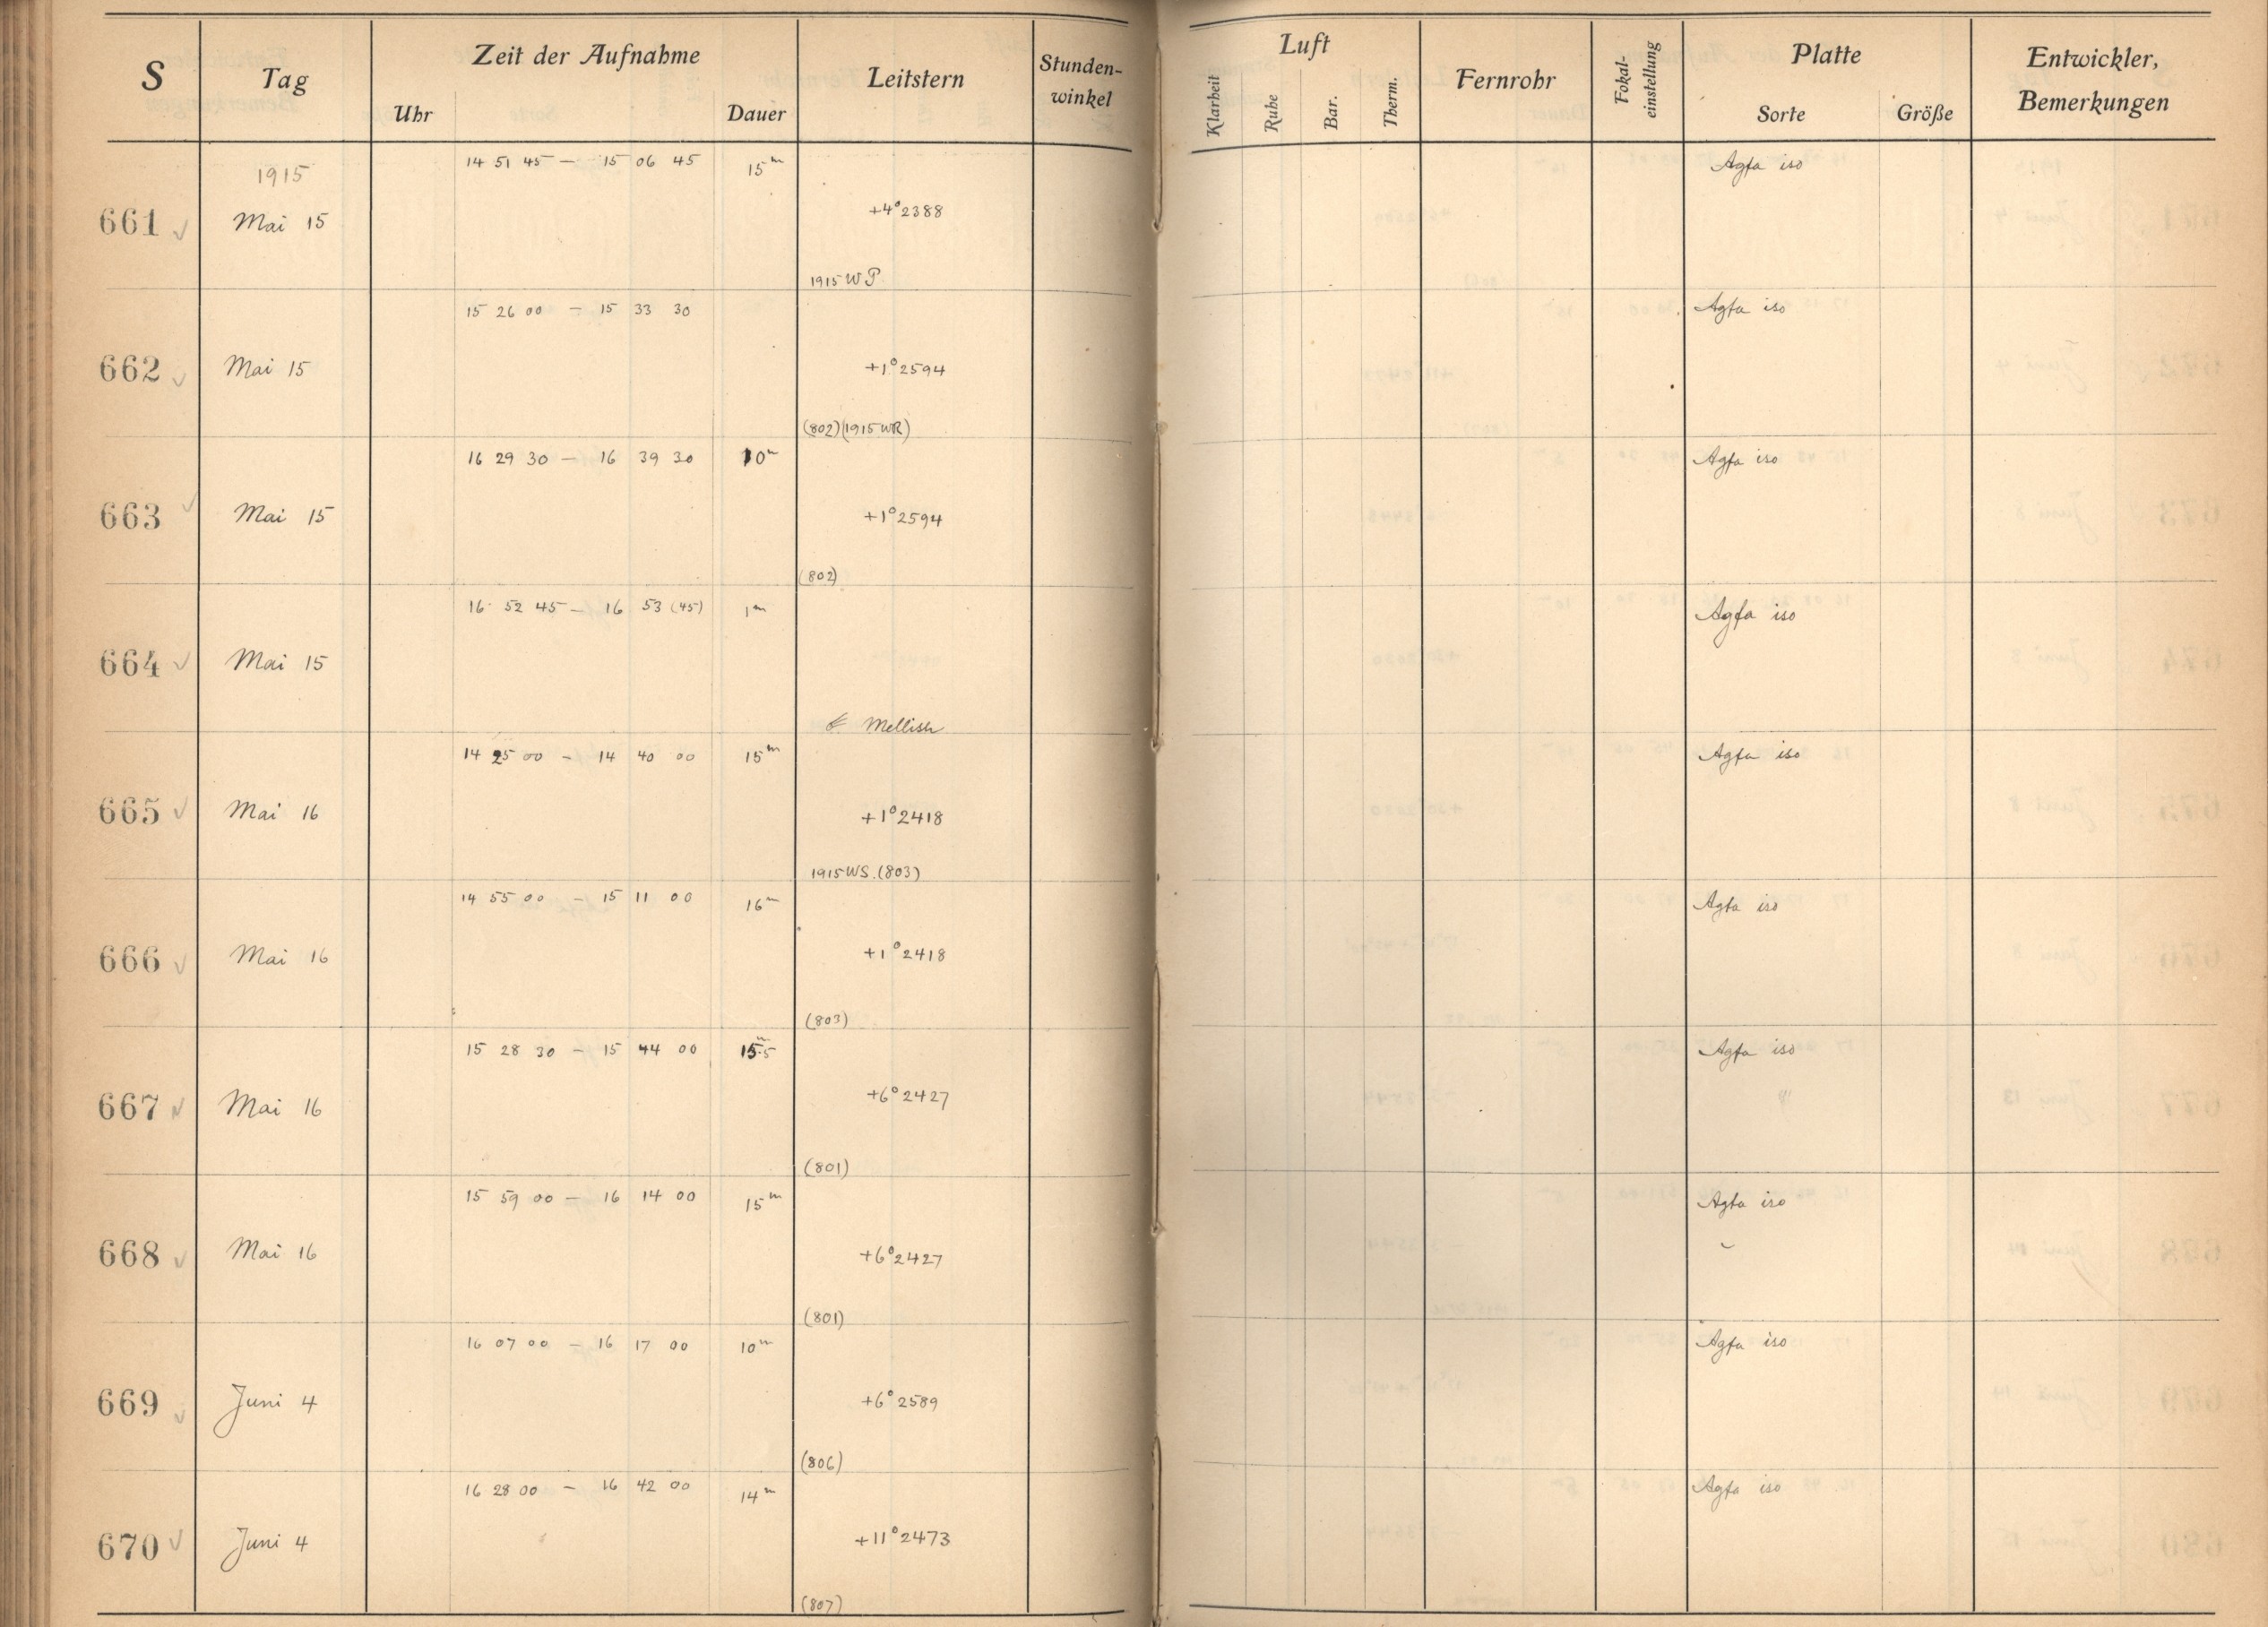 S Tag Zeit der Aufnahme Uhr Dauer Leitstern Stunden-winkel Luft Klarheit Ruhe Bar. Therm. Fernrohr Fokal-einstellung Platte Sorte Größe Entwickler, Bemerkungen
1915
14 51 45 — 15 06 45 15m Agfa iso
661 Mai 15 +4° 2388
1915 WP
15 26 00 — 15 33 30 Agfa iso
662 Mai 15 +1° 2594
(802) (1915 WR)
16 29 30 — 16 39 30 10m Agfa iso
663 Mai 15 +1° 2594
(802)
16 52 45 — 16 53 (45) 1m Agfa iso
664 Mai 15
Mellish
14 25 00 — 14 40 00 15m Agfa iso
665 Mai 16 +1° 2418
1915 WS. (803)
14 55 00 — 15 11 00 16m Agfa iso
666 Mai 16 +1° 2418
(803)
15 28 30 — 15 44 00 15m.5 Agfa iso
667 Mai 16 +6° 2427
(801)
15 59 00 — 16 14 00 15m Agfa iso
668 Mai 16 +6° 2427
(801)
16 07 00 — 16 17 00 10m Agfa iso
669 Juni 4 +6° 2589
(806)
16 28 00 — 16 42 00 14m Agfa iso
670 Juni 4 +11° 2473
(807)